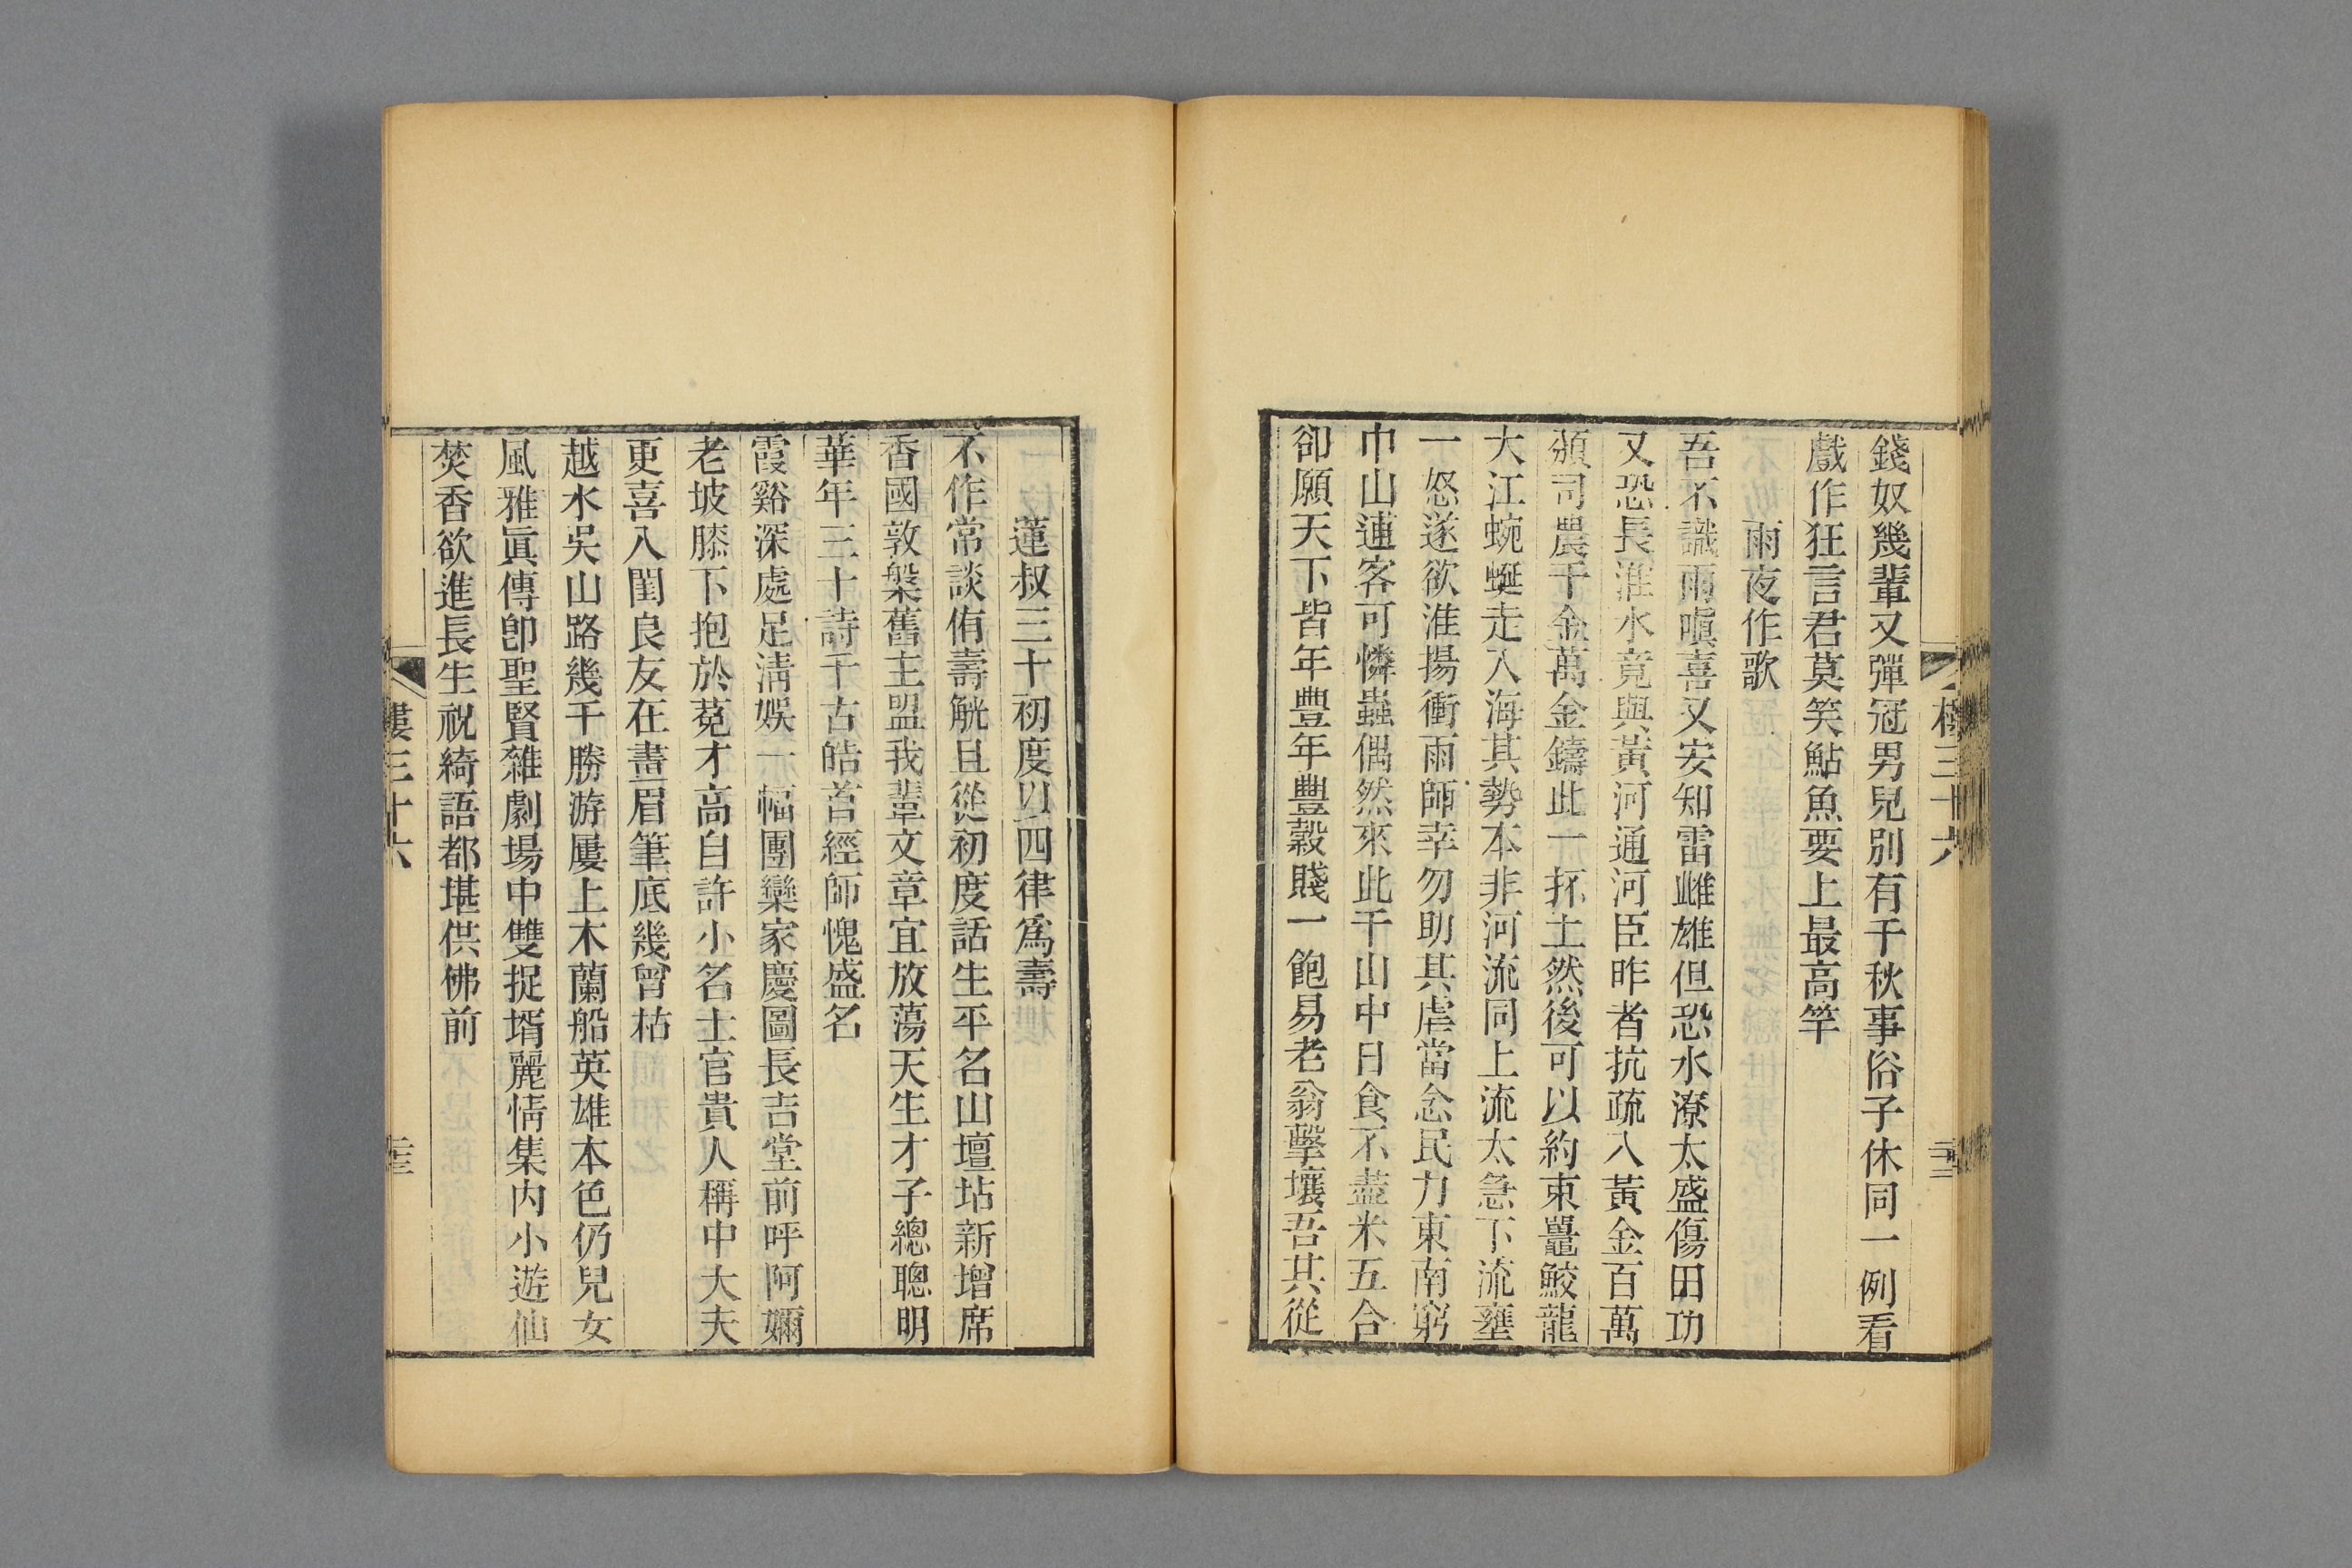 錢奴幾輩又彈冠男兒別有千秋事俗子休同一例看
戲作狂言君莫笑鮎魚要上最高竿
雨夜作歌
吾不識雨嗔喜又安知雷雌雄但恐水潦太盛傷田功
又恐長淮水竟與黃河通河臣昨者抗疏入黃金百萬
頒司農千金萬金鑄此一抔土然後可以約束鼉鮫龍
大江蜿蜒走入海其勢本非河流同上流太急下流壅
一怒遂欲淮揚衝雨師幸勿助其虐當念民力東南窮
巾山逋客可憐蟲偶然來此干山中日食不盡米五合
卻願天下皆年豐年豐穀賤一飽易老翁擊壤吾其從
蓮叔三十初度以四律爲壽
不作常談侑壽觥且從初度話生平名山壇坫新增席
香國敦槃舊主盟我輩文章宜放蕩天生才子總聰明
華年三十詩千古皓首經師愧盛名
霞谿深處足淸娛一幅團欒家慶圖長吉堂前呼阿㜷
老坡膝下抱於菟才高自許小名士官貴人稱中大夫
更喜入閨良友在畫眉筆底幾曾枯
越水吳山路幾千勝游屢上木蘭船英雄本色仍兒女
風雅眞傳卽聖賢雜劇場中雙捉壻麗情集內小遊仙
焚香欲進長生祝綺語都堪供佛前
樓三十六